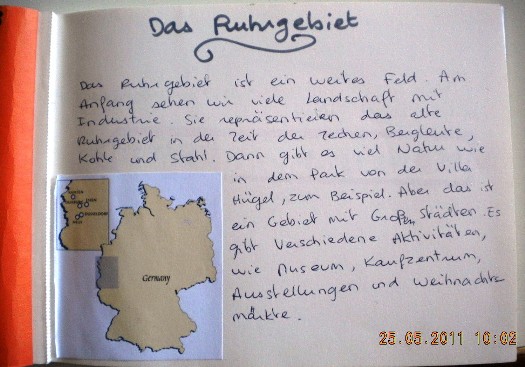 Das Ruhrgebiet
Das Ruhrgebiet ist ein weites Feld. Am
Anfang sehen wir viele Landschaft mit
Industrie. Sie repräsentieren das alte
Ruhrgebiet in der Zeit der Zechen, Bergleute,
Kohle und Stahl. Dann gibt es viel Natur wie
in dem Park von der Villa
Hügel, zum Beispiel. Aber das ist
ein Gebiet mit Großen Städten. Es
gibt verschiedene Aktivitäten,
wie Museum, Kaufzentrum,
Ausstellungen und Weihnachts
märkte.
Germany
25.05.2011 10:02